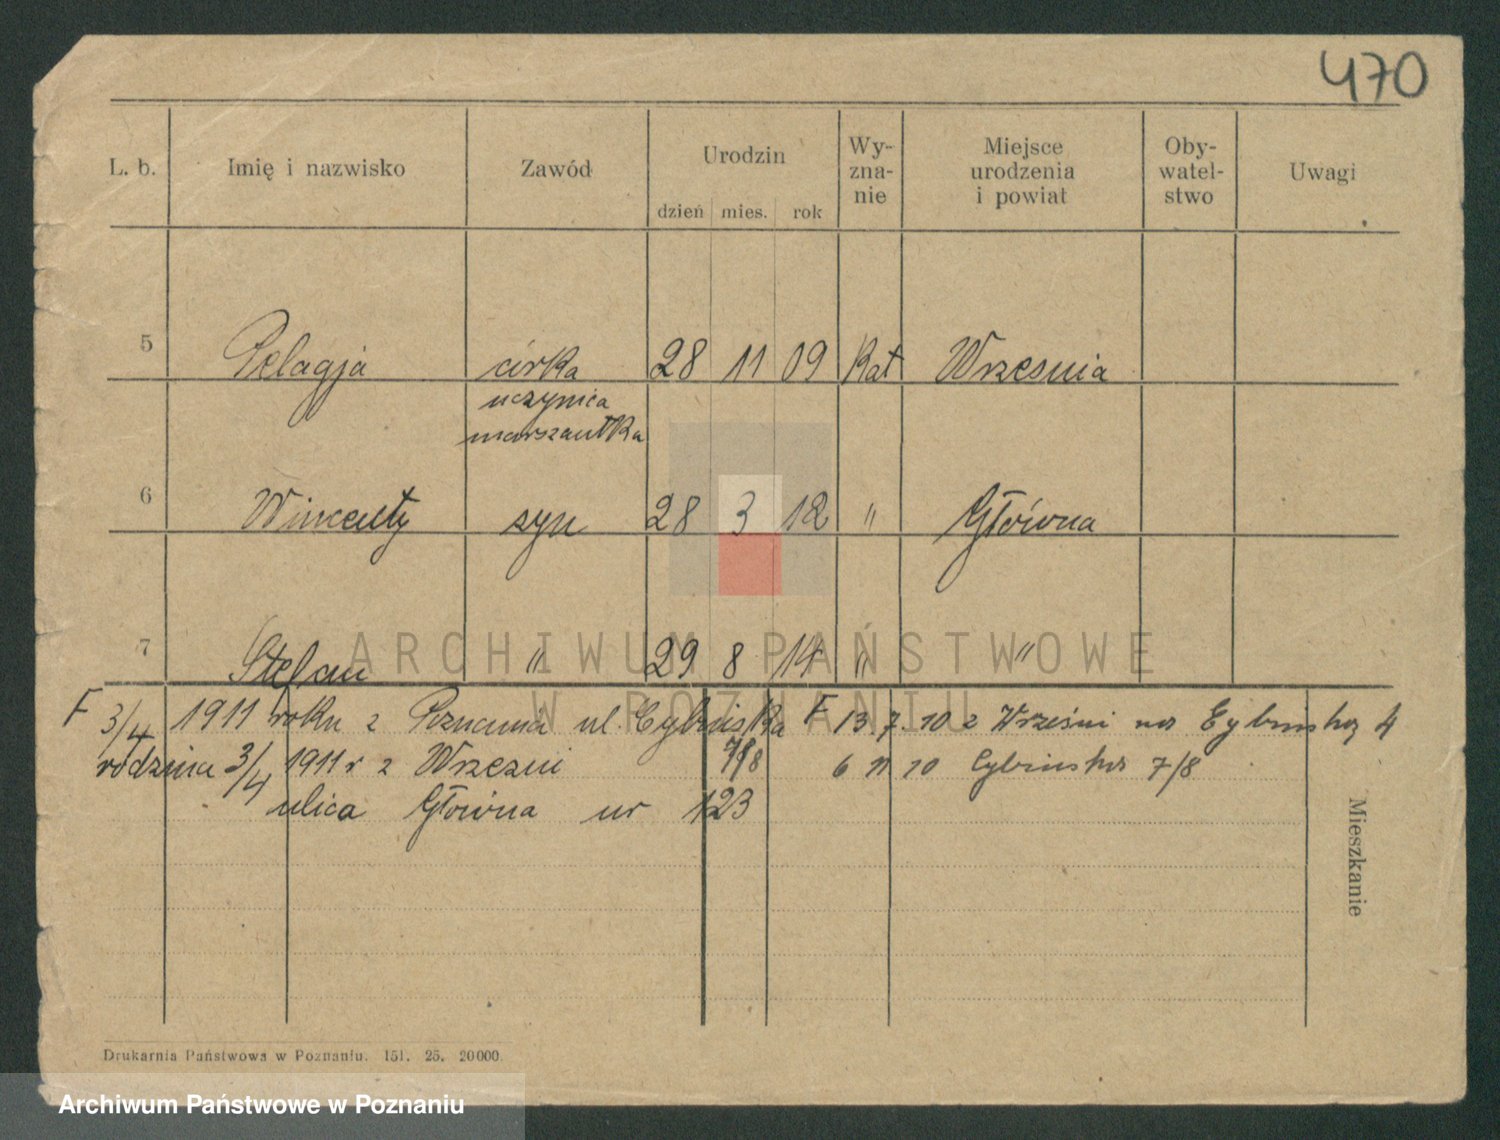 470
L. b. Imię i nazwisko Zawód Urodzin Wy-zna-nie Miejsce urodzenia i powiat Oby-watel-stwo Uwagi
dzień mies. rok
5 Pelagja córka 28 11 09 Kat Wrzesnia
uczynica
marszantka
6 Wincenty syn 28 3 12 " Główna
7 Stefan " 29 8 14 " "
F 3/4 1911 roku z Poznania ul. Cybińska 7/8
rodzina 3/4 1911 r z Wrzesni
ulica Główna nr 123
F 13 7. 10 z Wrześni na Cybińską 4
6 11 10 Cybińska 7/8
Mieszkanie
Drukarnia Państwowa w Poznaniu. 151. 25. 20000.
ARCHIWUM PAŃSTWOWE
W POZNANIU
Archiwum Państwowe w Poznaniu